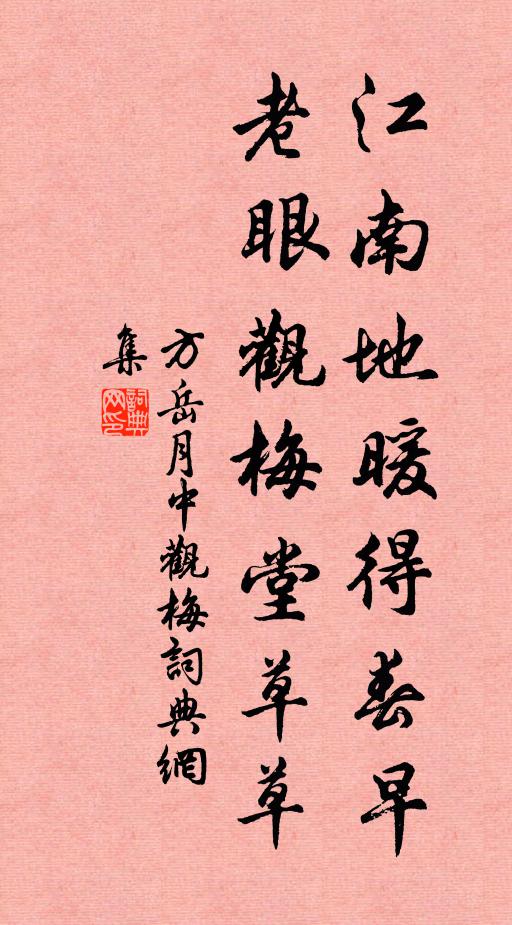 江南地暖得春早
老眼觀梅堂草草
方岳月中觀梅詞典網
集
詞典網印